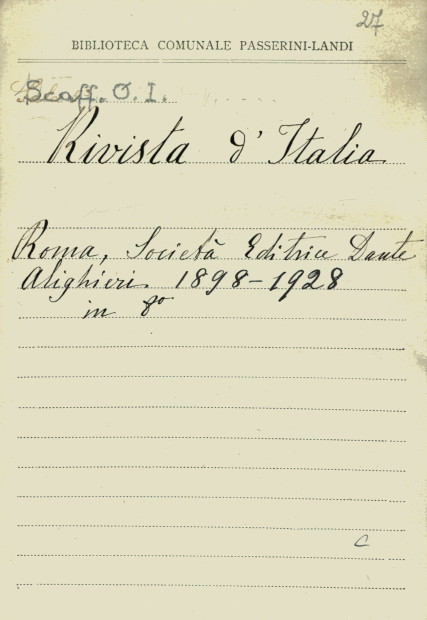 27
BIBLIOTECA COMUNALE PASSERINI-LANDI
Scaff. O. I.
Rivista d' Italia
Roma, Società Editrice Dante
Alighieri 1898-1928
in 8º
C